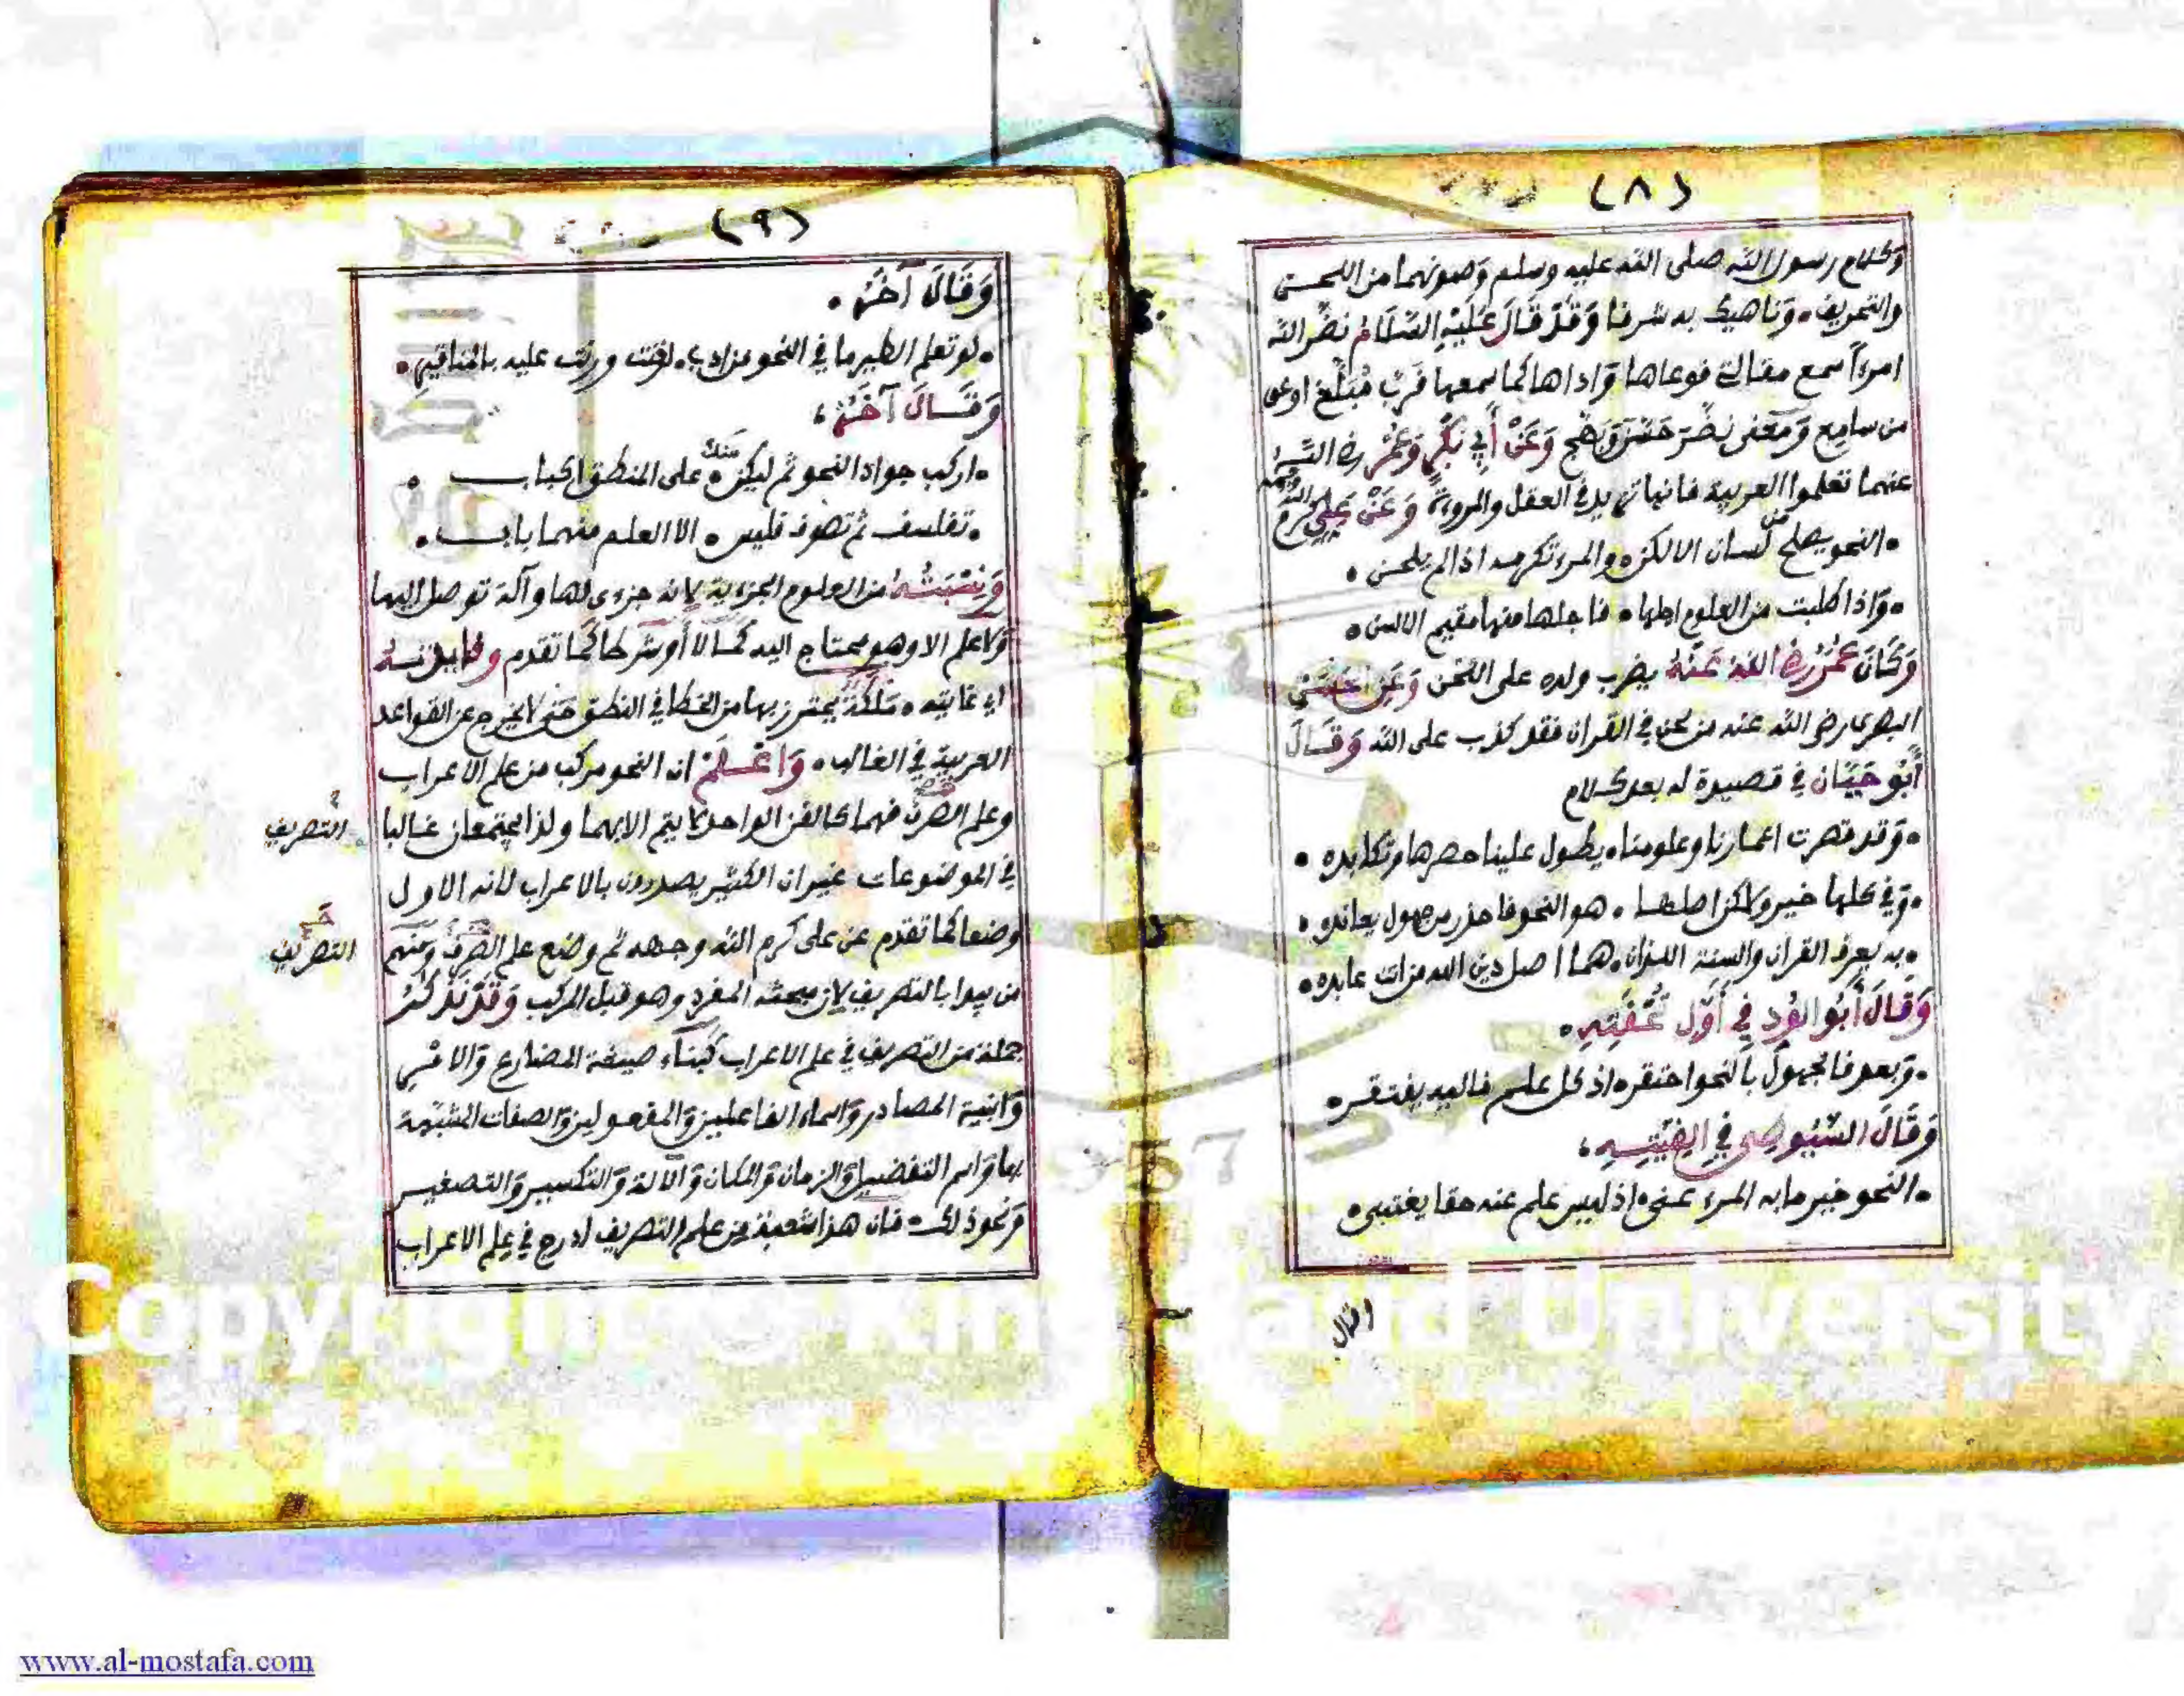 (٨)
وَكلام رسول الله صلى الله عليه وسلم وَصونهما من اللحن
والتحريف ٠ وَناهيك به شرفا وَقَدْ قَالَ عَلَيْهِ السَّلَامُ نضَّر الله
امرءاً سمع مقالتي فوعاها وَاداها كما سمعها فَربّ مُبَلَّغ اوعى
من سامِع وَمعنى نضّرَ حَسّنَ وَبهّج وَعَنْ أَبِي بَكْرٍ وَعُمَرَ رضي الله
عنهما تعلموا العربية فانها تزيد في العقل والمروءة وَعَنْ عَلِيٍّ كرم الله وجهه
٠ النحو يصلح من لسان الالكن ٠ والمرء تكرمه اذا لم يلحن ٠
٠ وَاذا طلبت من العلوم اجلها ٠ فاجلها منها مقيم الالسن ٠
وَكَانَ عُمَرُ رضي اللهُ عَنْهُ يضرب ولده على اللحْن وَعَنِ الحَسَنِ
البصرى رضي الله عنه من لحن في القرآن فقد كذب على الله وَقَالَ
أَبُو حَيَّان في قصيدة له بعد كلام
٠ وَقد قصرت اعمارنا وعلومنا ٠ يطول علينا حصرها وتكابده ٠
٠ وَفي كلها خير ولاكن اصلها ٠ هو النحو فاحذر من جهول يعانده ٠
٠ به يعرف القرآن والسنة اللذان ٠ هما اصل دين الله من ات عابده ٠
وَقَالَ أَبُو الوَرد فِي أَوَّلِ تُحْفَتِهِ ٠
٠ وَبعد فالجهولُ بالنحو احتقر ٠ اذ كل علم فاليه يفتقر ٠
وَقَالَ السُّيُوطِي فِي اَلفِيَّتِهِ ،
٠ النحو خير ما به المرء عنى ٠ اذ ليس علم عنه حقا يغتنى ٠
وقال
(٩)
وَقَالَ آخَرُ ٠
٠ لو تعلم الطير ما في النحو من ادب ٠ لغنت ورنت عليه بالمناقيرِ ٠
وَقَالَ آخَرُ ،
٠ اركب جواد النحو ثم ليكن ٠ منك على المنطق اكباب ٠
٠ تفلسف ثم تصوف فليس ٠ الا العلم منهما باب ٠
وَنِسْبَتُهُ من العلوم الجزءية لانه جزء لها وآلة توصل اليها
وَلا علم الا وهو محتاج اليه كمالا أو شرطا كما تقدم وفايدته
اي غايته ٠ مَلَكَةٌ يحترز بها من الخطا في النطق حتى لا يخرج عن القواعد
العربية في الغالب ٠ وَاعْلَمْ ان النحو مركب من علم الاعراب
وعلم الصرف فهما كالفن الواحد لا يتم الا بهما ولذا يجتمعان غالبا
التصريف
في الموضوعات غير ان الكثير يصدرون بالاعراب لانه الاول
وضعا كما تقدم عن على كرم الله وجهه ثم وضع علم الصرف وَمنهم
التصريف
من يبدا بالتصريف لان مبحثه المفرد وهو قبل المركب وَقَدْ تَذْكُرُ
جملة من التصريف في علم الاعراب كبناء صيغة المضارع وَالامر
وَابنية المصادر وَاسماء الفاعلين وَالمفعولين وَالصفات المشبّهة
بها وَاسم التفضيل وَالزمان وَالمكان وَالآلة وَالتكسير وَالتصغير
وَنحو ذلك ٠ فان هذا شعبة من علم التصريف ادرج في علم الاعراب
Copyright © King Saud University
www.al-mostafa.com